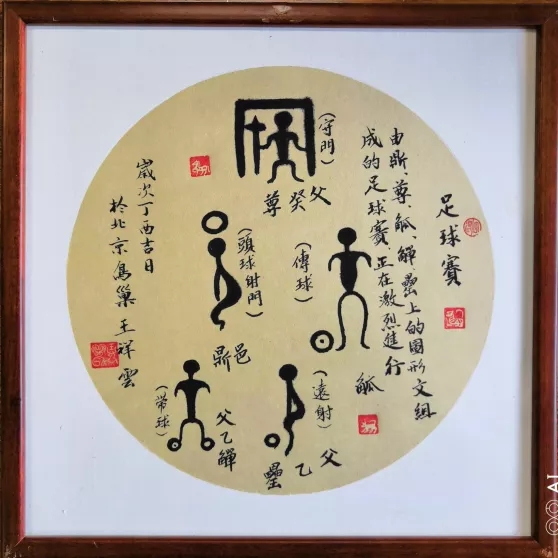 足球賽
由鼎、尊、觚、觶、罍上的圖形文組
成的足球賽正在激烈進行
(守門)
父癸尊
(傳球)
觚
(頭球射門)
邑鼎
(遠射)
父乙罍
(帶球)
父乙觶
歲次丁酉吉日
於北京鳥巢王祥雲
AI